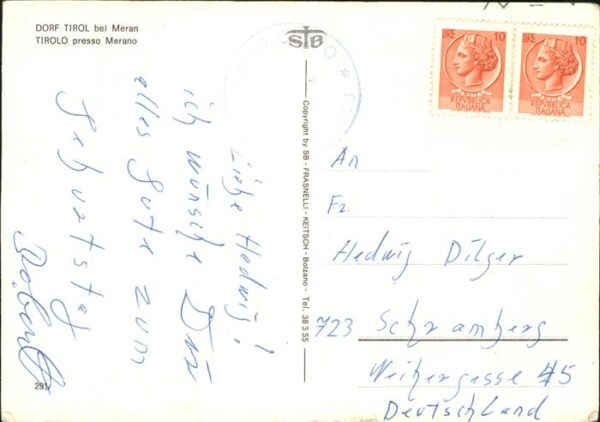 DORF TIROL bei Meran
TIROLO presso Merano
Liebe Hedwig!
ich wünsche Dir
alles Gute zum
Gebuztstag
Robert
291
SB
Copyright by SB - FRASNELLI - KEITSCH - Bolzano - Tel. 38 3 55
LIRE 10
REPVBBLICA
ITALIANA
LIRE 10
REPVBBLICA
ITALIANA
An
Fr.
Hedwig Dilger
723 Schramberg
Weihergasse 45
Deutschland